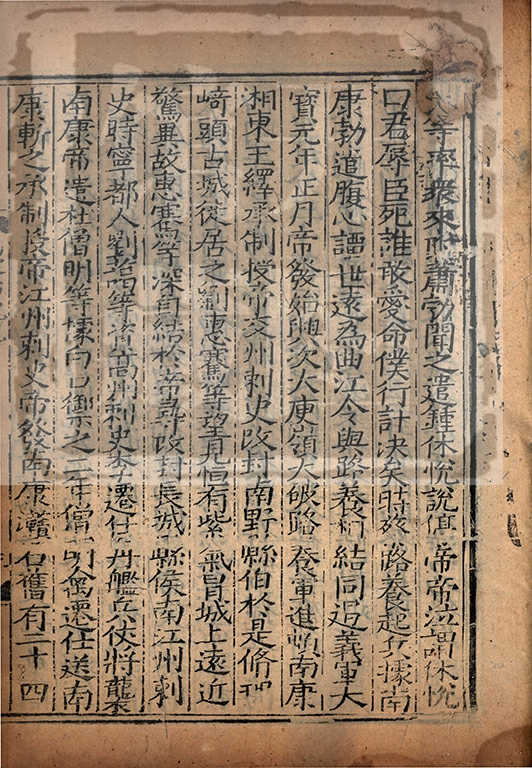 等率衆來附蕭勃聞之遣鍾休悅說停帝帝泣謂休悅
曰君辱臣死誰敢愛命僕行計決矣時蔡路養起兵據南
康勃遣腹心譚世遠爲曲江令與路養相結同遏義軍大
寶元年正月帝發始興次大庾嶺大破路養軍進頓南康
湘東王繹承制授帝交州刺史改封南野縣伯於是脩理
崎頭古城徙居之劉惠騫等望見恒有紫氣冒城上遠近
驚異故惠騫等深自結於帝尋改封長城縣侯南江州刺
史時寧都人劉藹等資高州刺史李遷仕舟艦兵仗將襲
南康帝遣杜僧明等據白口禦之二年僧明禽遷仕送南
康斬之承制授帝江州刺史帝發南康灨石舊有二十四